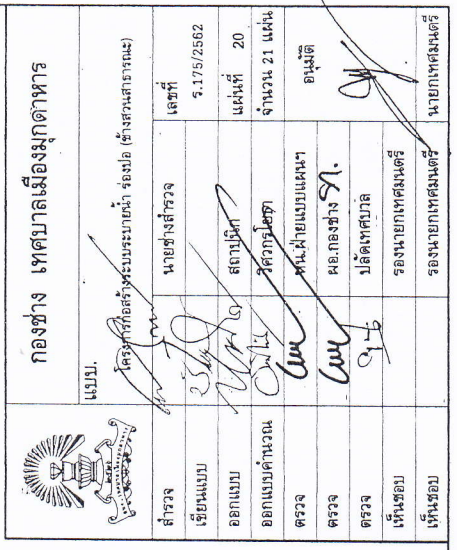 กองช่าง เทศบาลเมืองมุกดาหาร
แบบ.
โครงการก่อสร้างระบบระบายน้ำ ร่องปอ (ข้างสวนสาธารณะ)
สำรวจ นายช่างสำรวจ เลขที่
เขียนแบบ ร.175/2562
ออกแบบ สถาปนิก แผ่นที่ 20
ออกแบบคำนวณ วิศวกรโยธา จำนวน 21 แผ่น
ตรวจ หน.ฝ่ายแบบแผนฯ อนุมัติ
ตรวจ ผอ.กองช่าง
ตรวจ ปลัดเทศบาล
เห็นชอบ รองนายกเทศมนตรี
เห็นชอบ รองนายกเทศมนตรี นายกเทศมนตรี